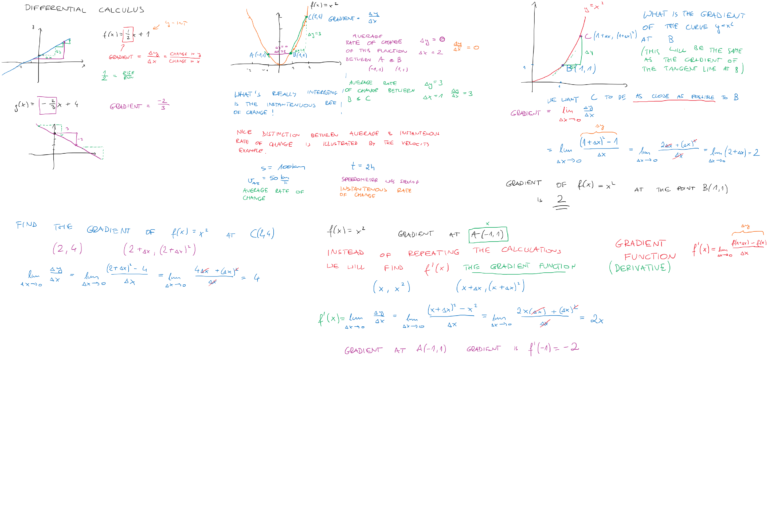 DIFFERENTIAL CALCULUS
f(x) = 1/2 x + 1
GRADIENT = Δy/Δx = CHANGE IN y / CHANGE IN x
g(x) = -2/3 x + 4
GRADIENT = -2/3
f(x) = x²
GRADIENT = Δy/Δx
C(2,4)
AVERAGE
RATE OF CHANGE
OF THIS FUNCTION
BETWEEN A & B
(-1,1) (1,1)
Δy = 0
Δx = 2
Δy/Δx = 0
AVERAGE RATE
OF CHANGE BETWEEN
B & C
Δy = 3
Δx = 1
Δy/Δx = 3
WHAT'S REALLY INTERESTING
IS THE INSTANTENEOUS RATE
OF CHANGE!
NICE DISTINCTION BETWEEN AVERAGE & INSTANTENEOUS
RATE OF CHANGE IS ILLUSTRATED BY THE VELOCITY
EXAMPLE
s = 100km
t = 2h
AVERAGE RATE OF
CHANGE
INSTANTENEOUS RATE
OF CHANGE
y = x²
C(1+Δx, (1+Δx)²)
Δy
B(1,1)
WHAT IS THE GRADIENT
OF THE CURVE y=x²
AT B
(THIS WILL BE THE SAME
AS THE GRADIENT OF
THE TANGENT LINE AT B)
WE WANT C TO BE AS CLOSE AS POSSIBLE TO B
GRADIENT = lim Δx→0 Δy/Δx
= lim Δx→0 ((1+Δx)² - 1)/Δx = lim Δx→0 (2Δx + (Δx)²)/Δx = lim Δx→0 (2+Δx) = 2
GRADIENT OF f(x) = x² AT THE POINT B(1,1)
IS 2
FIND THE GRADIENT OF f(x) = x² AT C(2,4)
(2,4) (2+Δx, (2+Δx)²)
lim Δx→0 Δy/Δx = lim Δx→0 ((2+Δx)² - 4)/Δx = lim Δx→0 (4Δx + (Δx)²)/Δx = 4
f(x) = x² GRADIENT AT A(-1,1)
INSTEAD OF REPEATING THE CALCULATIONS
WE WILL FIND f'(x) THE GRADIENT FUNCTION
(x, x²) (x+Δx, (x+Δx)²)
f'(x) = lim Δx→0 Δy/Δx = lim Δx→0 ((x+Δx)² - x²)/Δx = lim Δx→0 (2x(Δx) + (Δx)²)/Δx = 2x
GRADIENT AT A(-1,1) GRADIENT IS f'(-1) = -2
GRADIENT
FUNCTION
(DERIVATIVE)
Δy
f'(x) = lim Δx→0 (f(x+Δx) - f(x))/Δx